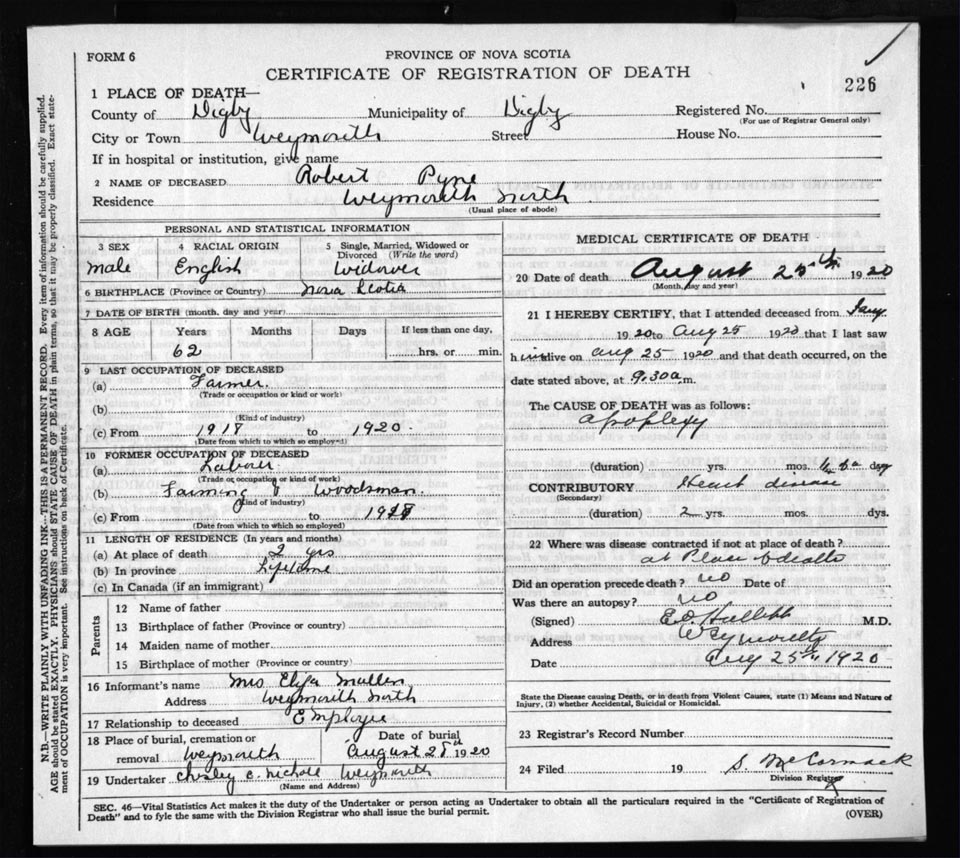 FORM 6
PROVINCE OF NOVA SCOTIA
CERTIFICATE OF REGISTRATION OF DEATH
226
1 PLACE OF DEATH—
County of Digby Municipality of Digby Registered No.
(For use of Registrar General only)
City or Town Weymouth Street House No.
If in hospital or institution, give name
2 NAME OF DECEASED Robert Pyne
Residence Weymouth North
(Usual place of abode)
PERSONAL AND STATISTICAL INFORMATION
3 SEX 4 RACIAL ORIGIN 5 Single, Married, Widowed or Divorced (Write the word)
Male English Widower
6 BIRTHPLACE (Province or Country) Nova Scotia
7 DATE OF BIRTH (month, day and year)
8 AGE Years Months Days If less than one day,
62 hrs. or min.
9 LAST OCCUPATION OF DECEASED
(a) Farmer.
(Trade or occupation or kind or work)
(b)
(Kind of industry)
(c) From 1918 to 1920.
(Date from which to which so employed)
10 FORMER OCCUPATION OF DECEASED
(a) Laborer
(Trade or occupation or kind of work)
(b) Farming & Woodsman.
(Kind of industry)
(c) From to 1918
(Date from which to which so employed)
11 LENGTH OF RESIDENCE (In years and months)
(a) At place of death 2 yrs
(b) In province Lifetime
(c) In Canada (if an immigrant)
Parents
12 Name of father
13 Birthplace of father (Province or country)
14 Maiden name of mother
15 Birthplace of mother (Province or country)
16 Informant's name Mrs Eliza Mullen
Address Weymouth North
17 Relationship to deceased Employee
18 Place of burial, cremation or removal Weymouth
Date of burial August 28th 1920
19 Undertaker Chesley C. Nichols Weymouth
(Name and Address)
MEDICAL CERTIFICATE OF DEATH
20 Date of death August 25th 1920
(Month, day and year)
21 I HEREBY CERTIFY, that I attended deceased from Jany.
1920 to Aug 25 1920 that I last saw
him alive on Aug 25 1920 and that death occurred, on the
date stated above, at 9.30 a.m.
The CAUSE OF DEATH was as follows:
Apoplexy
(duration) yrs. mos. dys
CONTRIBUTORY Heart disease
(Secondary)
(duration) 2 yrs. mos. dys.
22 Where was disease contracted if not at place of death?
at Place of death
Did an operation precede death? no Date of
Was there an autopsy? no
(Signed) M.D.
Address Weymouth
Date Aug 25th 1920
State the Disease causing Death, or in death from Violent Causes, state (1) Means and Nature of
Injury, (2) whether Accidental, Suicidal or Homicidal.
23 Registrar's Record Number
24 Filed 19 S. McCormack
Division Registrar
SEC. 46—Vital Statistics Act makes it the duty of the Undertaker or person acting as Undertaker to obtain all the particulars required in the "Certificate of Registration of
Death" and to fyle the same with the Division Registrar who shall issue the burial permit.
(OVER)
N.B.—WRITE PLAINLY WITH UNFADING INK—THIS IS A PERMANENT RECORD. Every item of information should be carefully supplied.
AGE should be stated EXACTLY. PHYSICIANS should STATE CAUSE OF DEATH in plain terms, so that it may be properly classified. Exact state-
ment of OCCUPATION is very important. See instructions on back of Certificate.